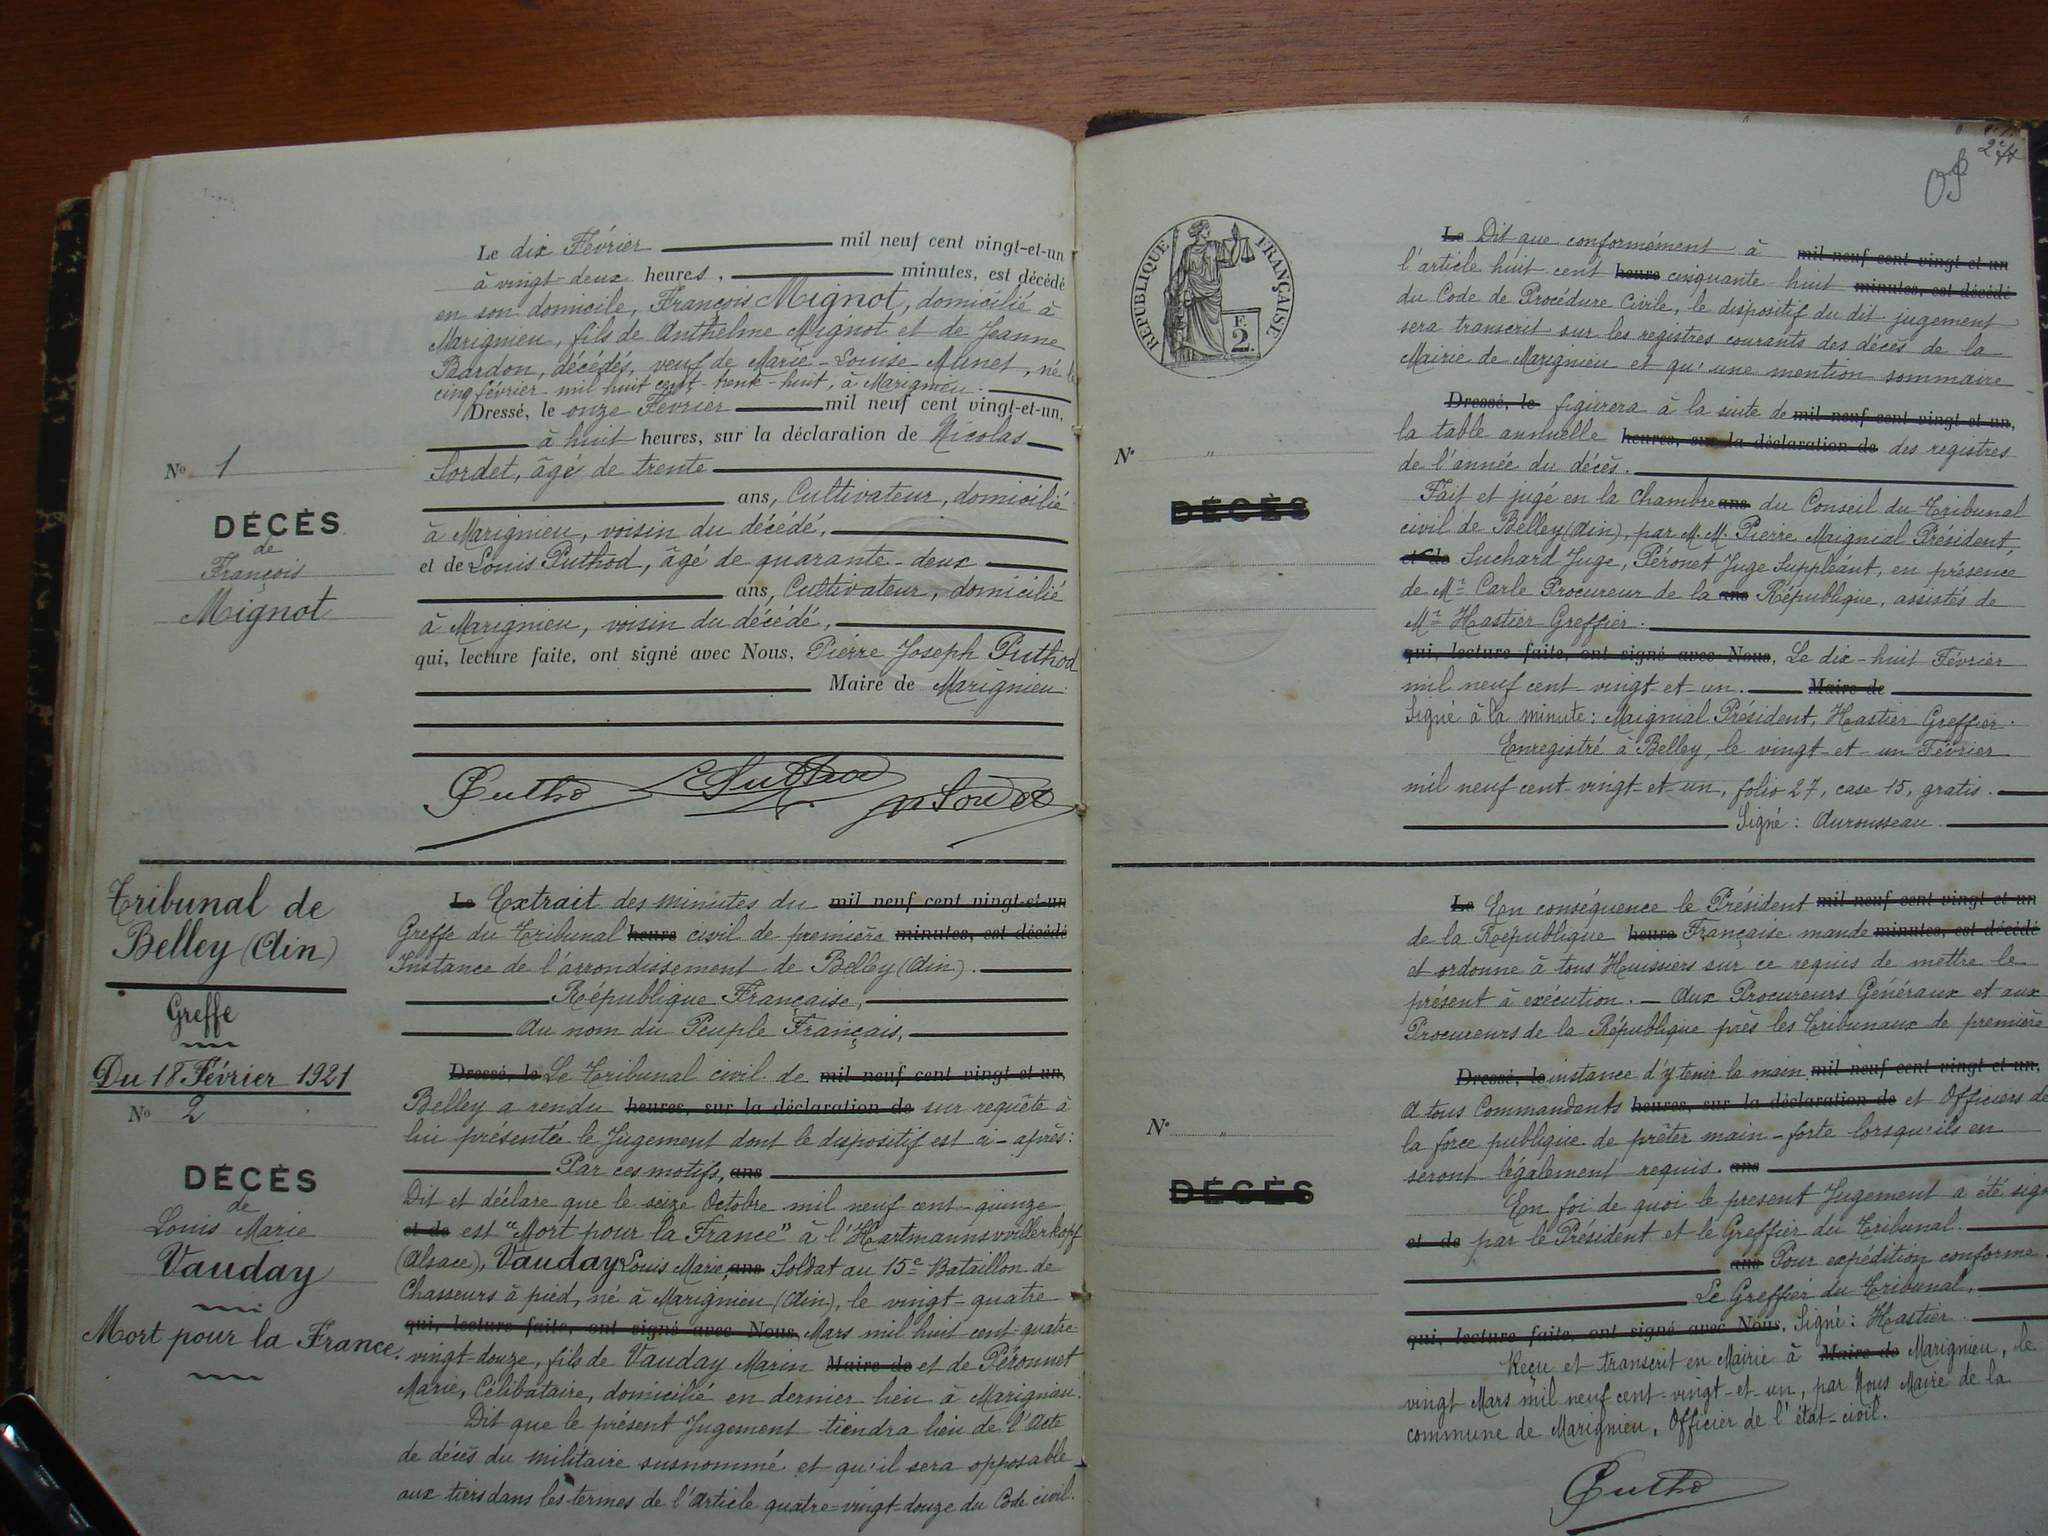 Le dix Février mil neuf cent vingt-et-un
à vingt-deux heures, minutes, est décédé
en son domicile, François Mignot, domicilié à
Marignieu, fils de Anthelme Mignot et de Jeanne
Bardon, décédés, veuf de Marie-Louise Munet, né le
cinq février mil huit cent trente-huit, à Marignieu.
Dressé, le onze Février mil neuf cent vingt-et-un,
à huit heures, sur la déclaration de Nicolas
Sordet, âgé de trente
ans, Cultivateur, domicilié
à Marignieu, voisin du décédé,
et de Louis Puthod, âgé de quarante-deux
ans, Cultivateur, domicilié
à Marignieu, voisin du décédé,
qui, lecture faite, ont signé avec Nous, Pierre Joseph Puthod
Maire de Marignieu.
Nº 1
DÉCÈS
de
François
Mignot
Tribunal de
Belley (Ain)
Greffe
Du 18 Février 1921
Nº 2
DÉCÈS
de
Louis Marie
Vauday
Mort pour la France.
Le Extrait des minutes du mil neuf cent vingt-et-un
Greffe du Tribunal heure civil de première minutes, est décédé
Instance de l'arrondissement de Belley (Ain).
République Française,
Au nom du Peuple Français,
Dressé, le Le Tribunal civil de mil neuf cent vingt et un,
Belley a rendu heures, sur la déclaration de sur requête à
lui présentée le Jugement dont le dispositif est ci-après:
Par ces motifs, ans
Dit et déclare que le seize Octobre mil neuf cent-quinze
et de est "Mort pour la France" à l'Hartmannsvillerkopf
(Alsace), Vauday Louis Marie, ans Soldat au 15e Bataillon de
Chasseurs à pied, né à Marignieu (Ain), le vingt-quatre
qui, lecture faite, ont signé avec Nous, Mars mil huit cent quatre-
vingt-douze, fils de Vauday Marin Maire de et de Péronnet
Marie, Célibataire, domicilié en dernier lieu à Marignieu.
Dit que le présent Jugement tiendra lieu de l'Acte
de décès du militaire susnommé et qu'il sera opposable
aux tiers dans les termes de l'article quatre-vingt-douze du Code civil.
RÉPUBLIQUE FRANÇAISE
F.
2.
Le Dit que conformément à mil neuf cent vingt et un
l'article huit cent heure cinquante-huit minutes, est décédé
du Code de Procédure Civile, le dispositif du dit jugement
sera transcrit sur les registres courants des décès de la
Mairie de Marignieu et qu'une mention sommaire
Dressé, le figurera à la suite de mil neuf cent vingt et un,
la table annuelle heures, sur la déclaration de des registres
de l'année du décès.
Fait et jugé en la Chambre ans du Conseil du Tribunal
civil de Belley (Ain), par M. M. Pierre Maignial Président,
et de Suchard Juge, Péronet Juge Suppléant, en présence
de Mr Carle Procureur de la ans République, assistés de
Mr Hastier Greffier.
qui, lecture faite, ont signé avec Nous, Le dix-huit Février
mil neuf cent-vingt et un. Maire de
Signé à la minute: Maignial Président, Hastier Greffier.
Enregistré à Belley, le vingt-et-un Février
mil neuf cent-vingt-et-un, folio 27, case 15, gratis.
Signé: Aurousseau.
Nº "
DÉCÈS
Le En conséquence le Président mil neuf cent vingt et un
de la République heure Française mande minutes, est décédé
et ordonne à tous Huissiers sur ce requis de mettre le
présent à exécution. — Aux Procureurs Généraux et aux
Procureurs de la République près les Tribunaux de première
Dressé, le instance d'y tenir la main mil neuf cent vingt et un,
A tous Commandants heures, sur la déclaration de et Officiers de
la force publique de prêter main-forte lorsqu'ils en
seront légalement requis. ans
En foi de quoi le présent Jugement a été sign
et de par le Président et le Greffier du Tribunal.
ans Pour expédition conforme.
Le Greffier du Tribunal,
qui, lecture faite, ont signé avec Nous, Signé: Hastier.
Reçu et transcrit en Mairie à Maire de Marignieu, le
vingt Mars mil neuf cent-vingt-et-un, par Nous Maire de la
commune de Marignieu, Officier de l'état-civil.
Nº "
DÉCÈS